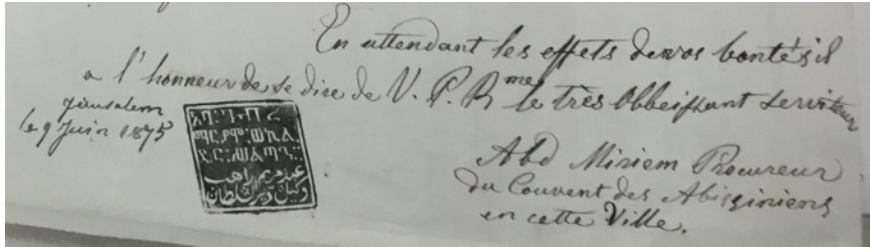 En attendant les effets de vos bontés il
a l'honneur de se dire de V. P. Rme le très obbeissant serviteur
Jérusalem
le 9 Juin 1875
عبد مريم راهب
وكيل دير السلطان
Abd Miriem Procureur
du Couvent des Abissiniens
en cette Ville.